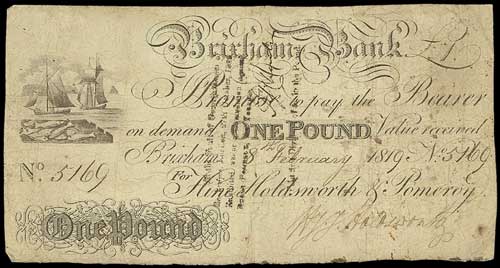 Brixham Bank £1
I Promise to pay the Bearer
on demand ONE POUND Value received
Brixham 8th February 1819 No. 5169
No. 5169
For Hine Holdsworth & Pomeroy
One Pound
Holdsworth